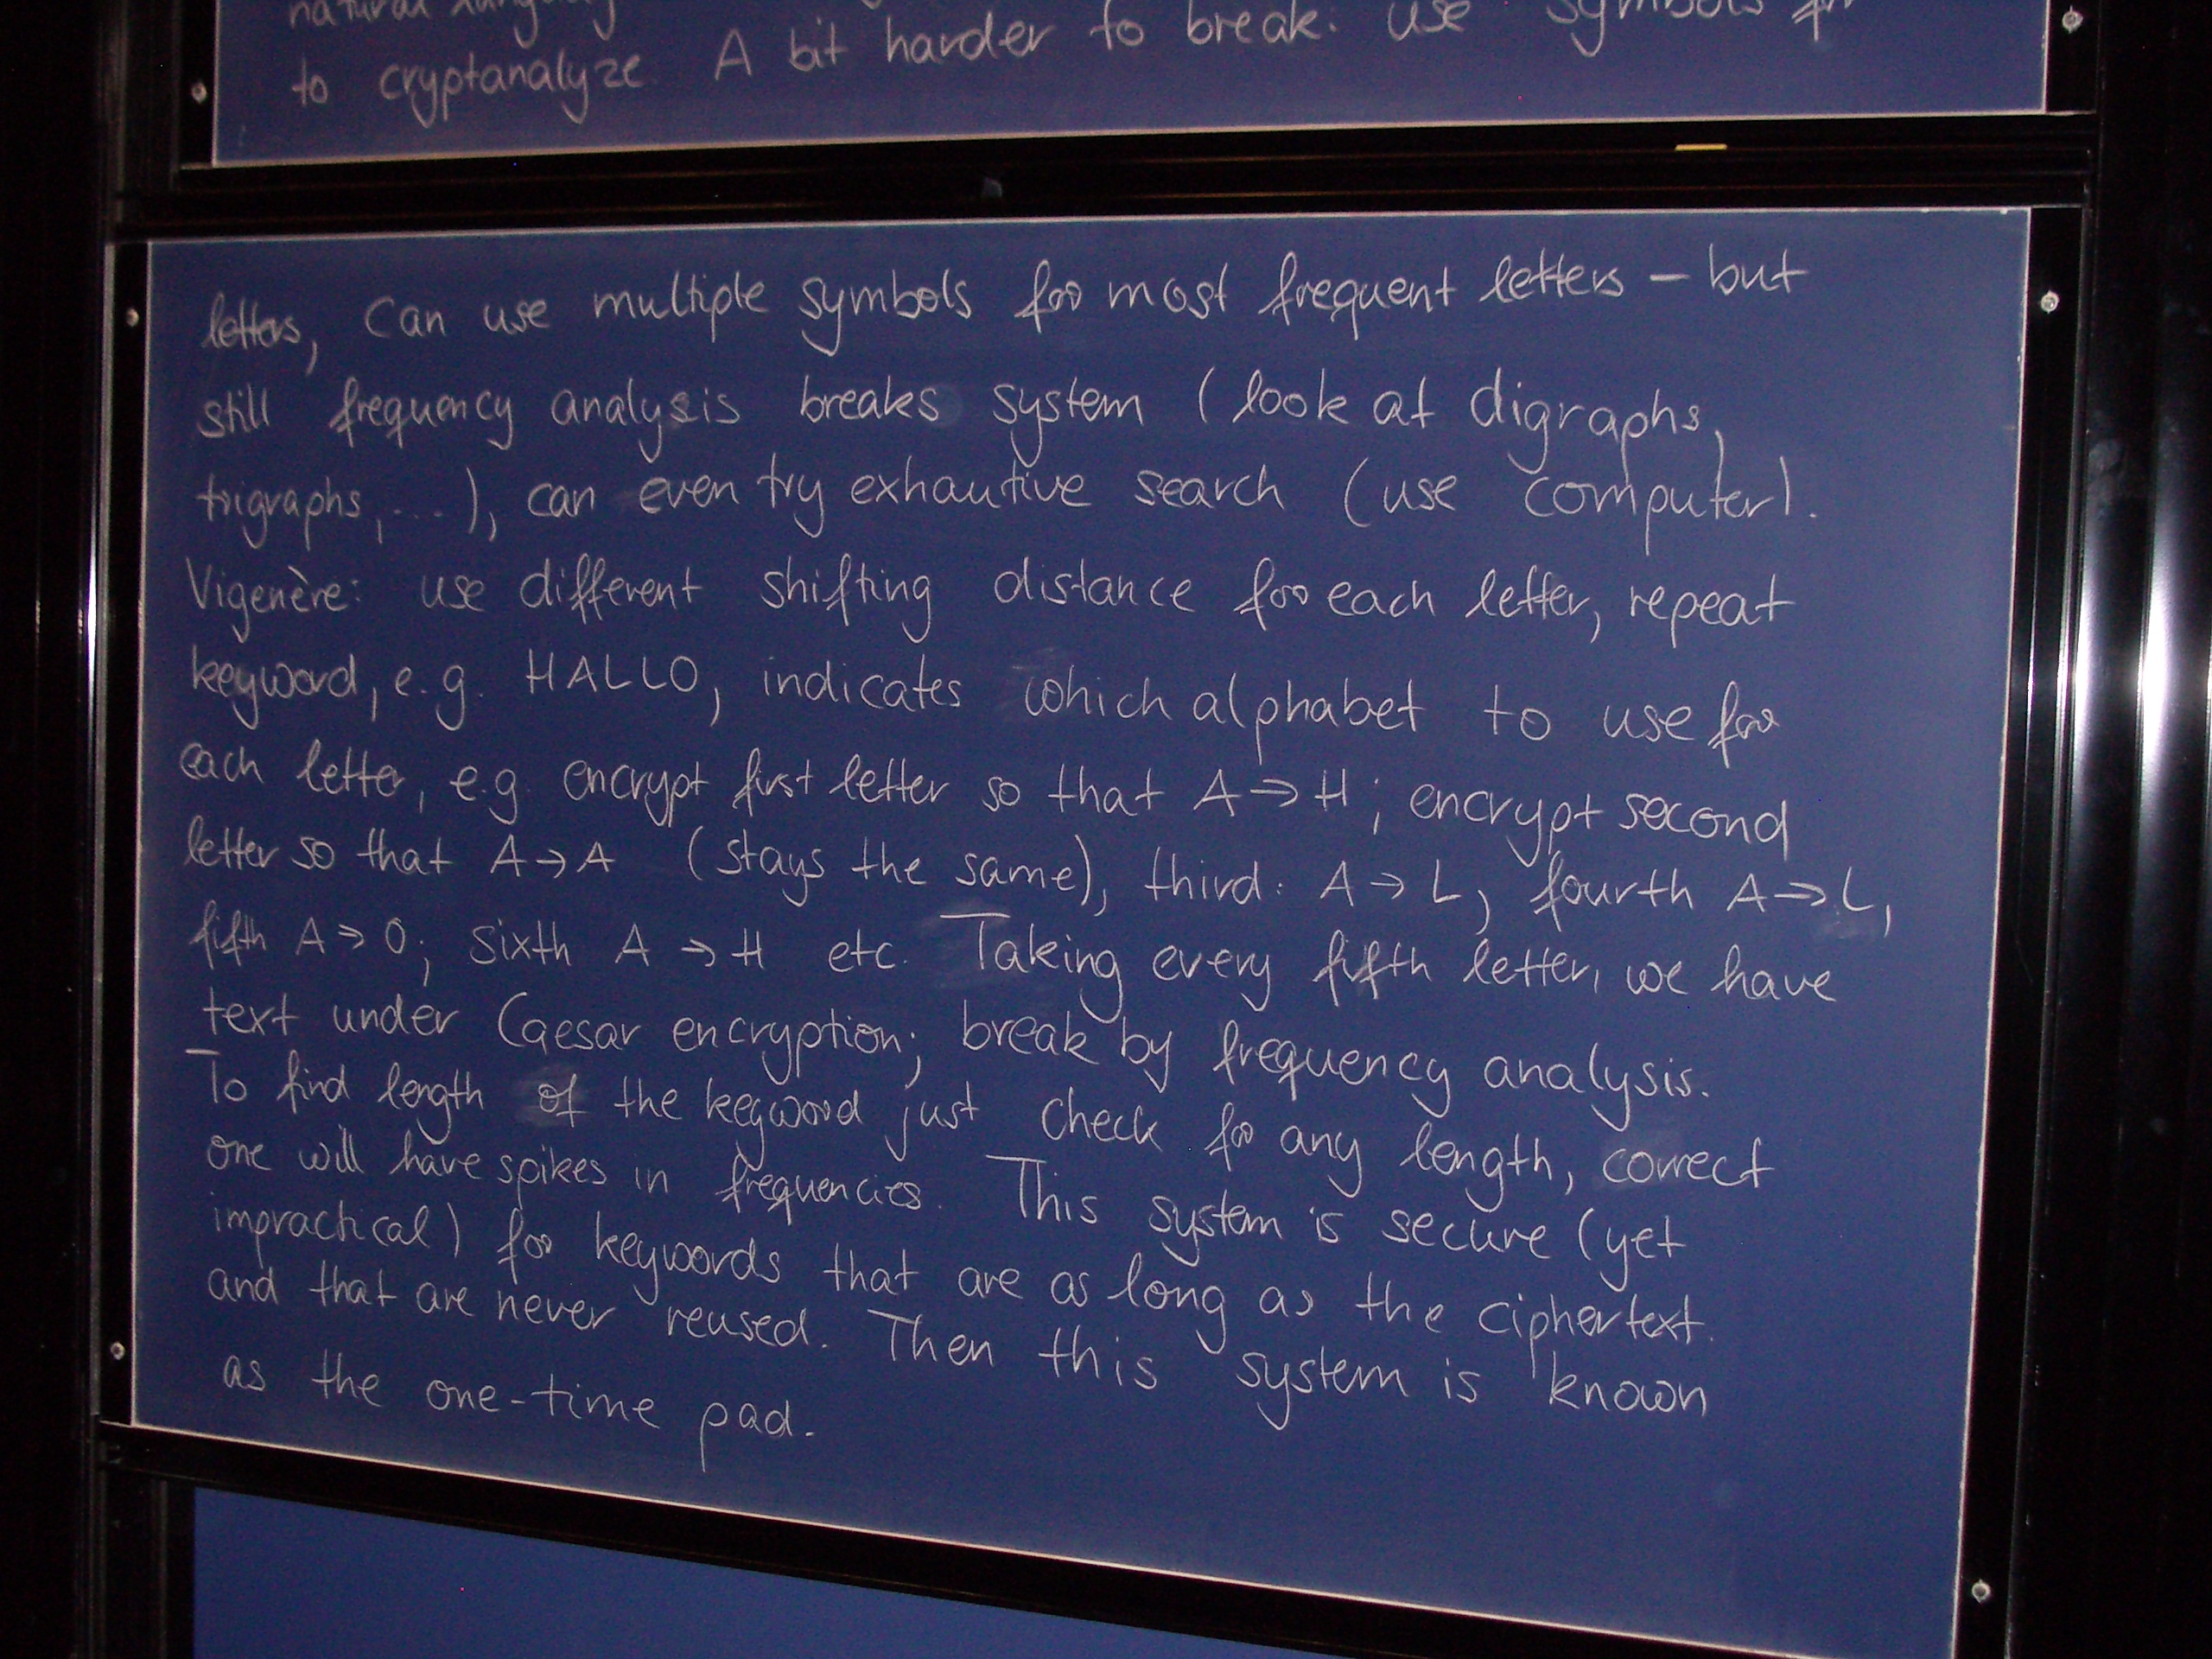 natural
to cryptanalyze. A bit harder to break: use symbols for
letters, can use multiple symbols for most frequent letters – but
still frequency analysis breaks system (look at digraphs,
trigraphs,...), can even try exhautive search (use computer).
Vigenère: use different shifting distance for each letter, repeat
keyword, e.g. HALLO, indicates which alphabet to use for
each letter, e.g. encrypt first letter so that A → H; encrypt second
letter so that A → A (stays the same), third: A → L; fourth A → L,
fifth A → O; sixth A → H etc. Taking every fifth letter, we have
text under Caesar encryption; break by frequency analysis.
To find length of the keyword just check for any length, correct
one will have spikes in frequencies. This system is secure (yet
impractical) for keywords that are as long as the ciphertext.
and that are never reused. Then this system is known
as the one-time pad.